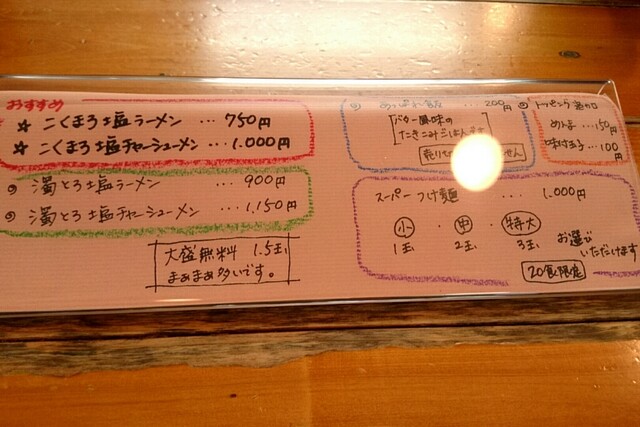 おすすめ
☆ こくまろ塩ラーメン … 750円
☆ こくまろ塩チャーシューメン … 1.000円
濁とろ塩ラーメン … 900円
濁とろ塩チャーシューメン … 1,150円
大盛無料 1.5玉
まぁまぁ多いです。
200円
バター風味の
たきこみごはん
トッピング
めんま … 150円
味付玉子 … 100円
スーパーつけ麺 … 1.000円
小 ・ 中 ・ 特大
1玉 2玉 3玉
お選び
いただけます
20食限定